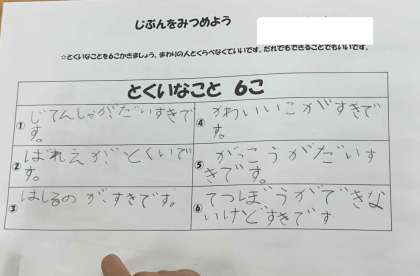 じぶんをみつめよう
☆とくいなことを6こかきましょう。まわりの人とくらべなくていいです。だれでもできることでもいいです。
とくいなこと 6こ
① じてんしゃがだいすきで
す。
② ばれえがとくいで
す。
③ はしるのが、すきです。
④ かわいいこがすきで
す。
⑤ がっこうがだいす
きです。
⑥ てつぼうができな
いけどすきです